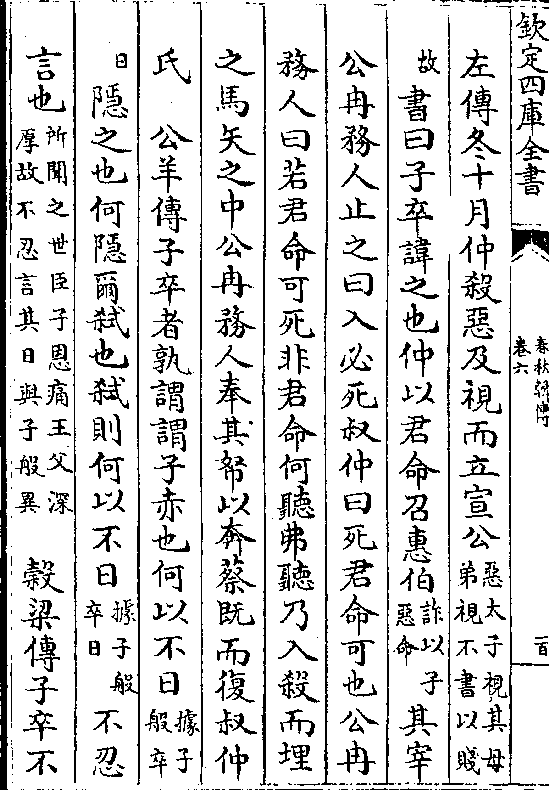 欽定四庫全書
春秋辨傳
卷六
左傳冬十月仲殺惡及視而立宣公惡太子視其母弟視不書以賤
故書曰子卒諱之也仲以君命召惠伯詐以子惡命其宰
公冉務人止之曰入必死叔仲曰死君命可也公冉
務人曰若君命可死非君命何聽弗聽乃入殺而埋
之馬矢之中公冉務人奉其帑以奔蔡既而復叔仲
氏 公羊傳子卒者孰謂謂子赤也何以不日據子般卒
日隱之也何隱爾弑也弑則何以不日據子般卒日不忍
言也所聞之世臣子恩痛王父深厚故不忍言其日與子般異 榖梁傳子卒不